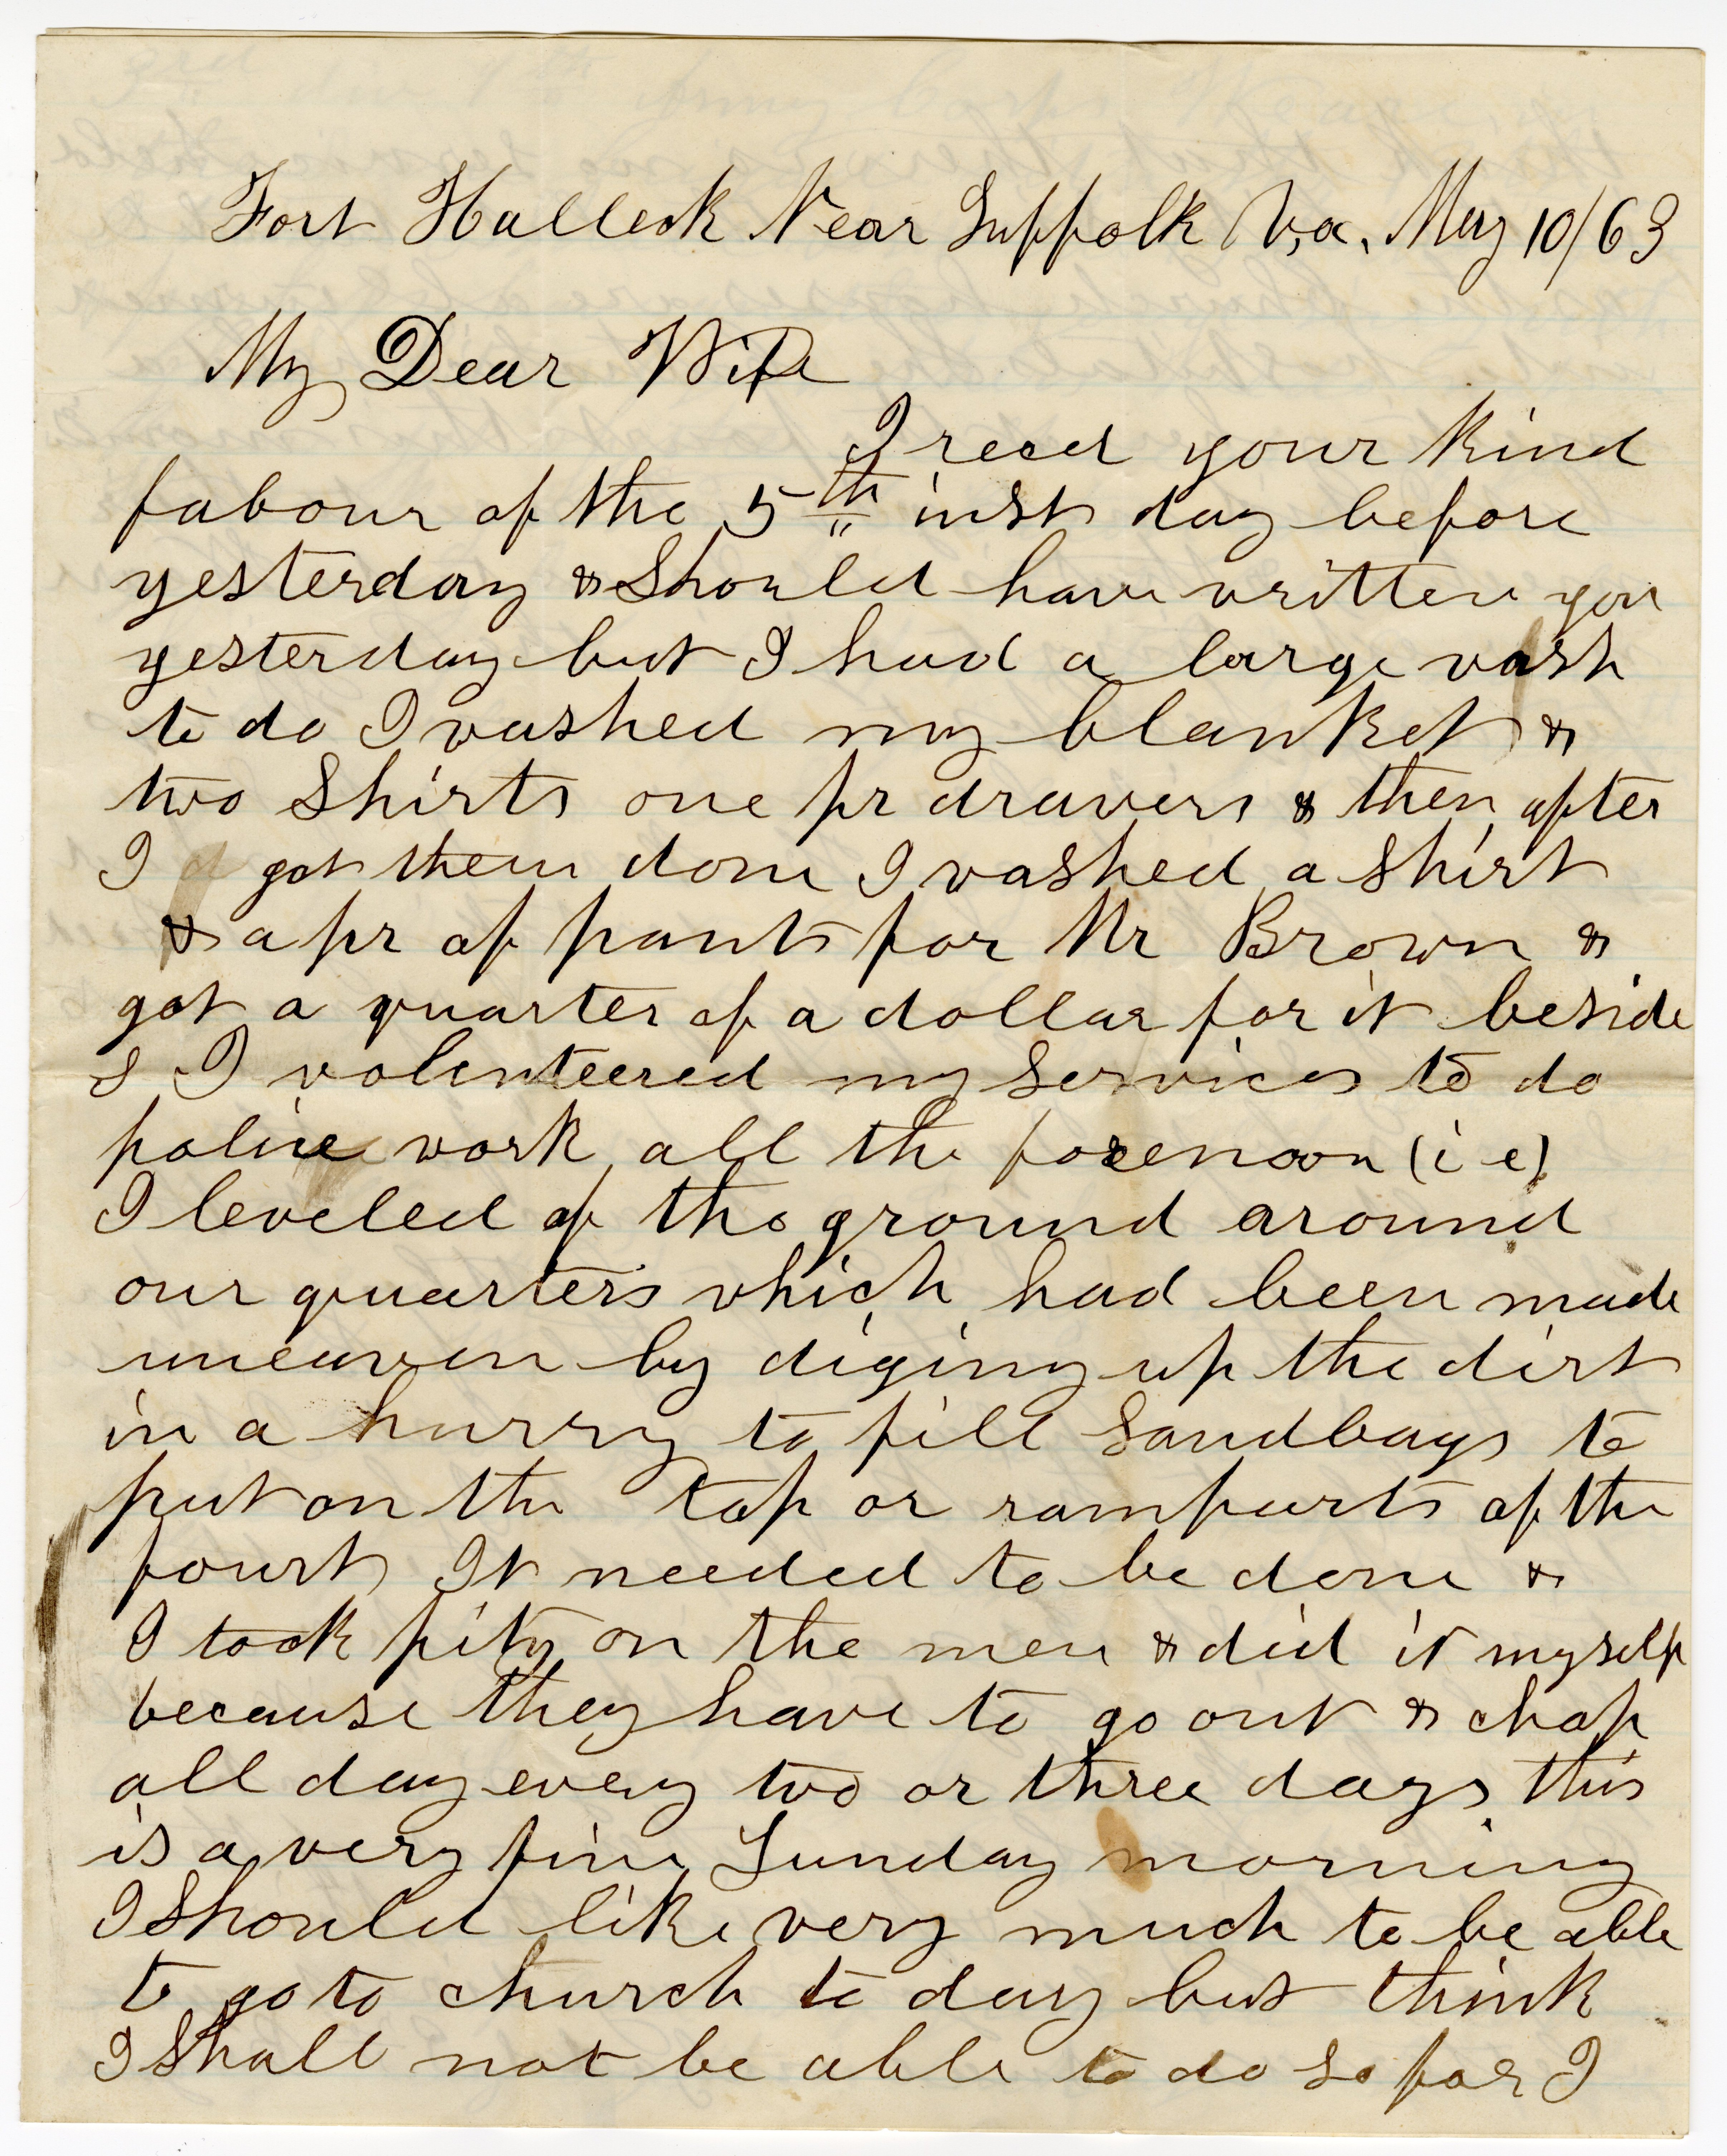 Fort Halleck Near Suffolk Va. May 10/63
My Dear Wife
I recd your kind
fabour of the 5th inst day before
yesterday & Should have written you
yesterday but I had a large wash
to do I washed my blanket &
two Shirts one pr drawers & then after
I got them done I washed a shirt
& a pr of pants for Mr Brown &
got a quarter of a dollar for it beside
s I volenteered my Services to do
police work all the forenoon (i e)
I leveled of the ground around
our quarters which had been made
uneaven by diging up the dirt
in a hurry to fill Sandbags to
put on the top or ramparts of the
fourt It needed to be done &
I took pity on the men & did it myself
because they have to go out & chop
all day every two or three days this
is a very fine Sunday morning
I Should like very much to be able
to go to church to day but think
I Shall not be able to do So for I